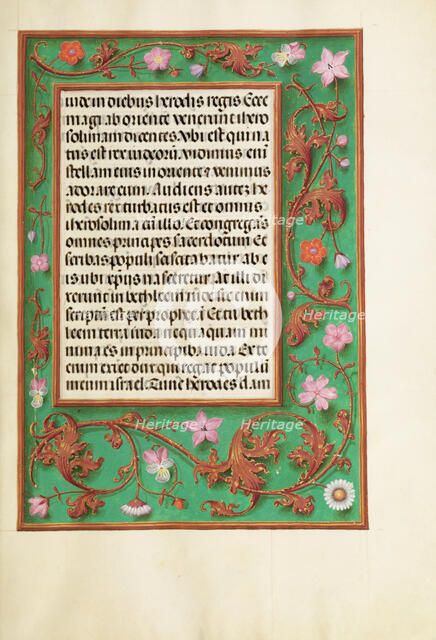 iude in diebus herodis regis Ecce
magi ab oriente venerunt ihero
solimam dicentes Vbi est qui na
tus est rex iudeorū Vidimus enī
stellam eius in oriente et venimus
adorare eum Audiens autē he
rodes rex turbatus est et omnis
iherosolima cū illo Et congregās
omnes principes sacerdotum Et
scribas populi sciscitabatur ab e
is ubi xp̄s nasceretur At illi dix̄
erunt in bethleem iude sic enim
scriptū est per prophetā Et tu beth
leem terra iuda nequaquam mi
nima es in principibꝫ iuda Ex te
enim exiet dux qui regat populū
meum israel Tunc herodes clam
Heritage
Heritage
Heritage
Heritage
Heritage
Heritage